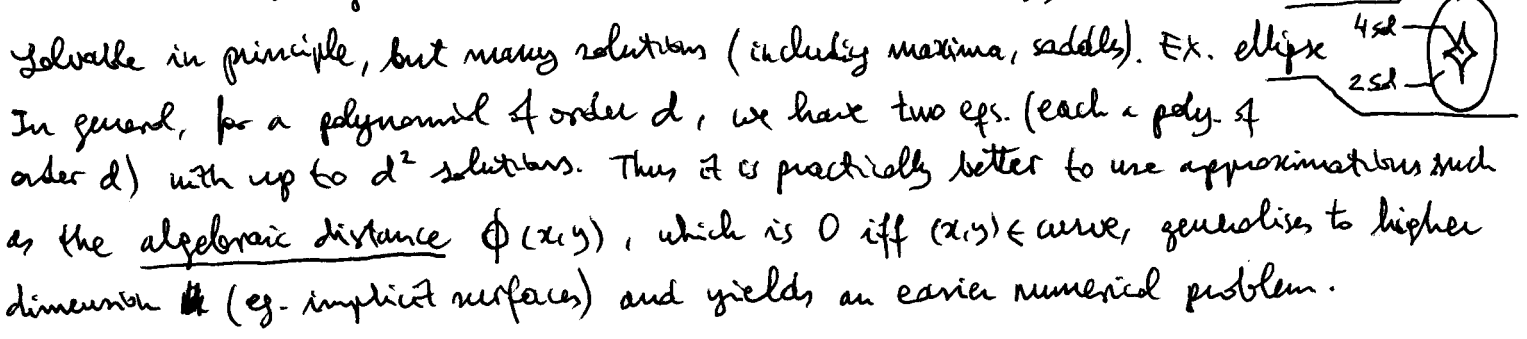 Solvable in principle, but many solutions (including maxima, saddles). Ex. ellipse
4 sol
2 sol
In general, for a polynomial of order d, we have two eqs. (each a poly. of
order d) with up to d² solutions. Thus it is practically better to use approximations such
as the algebraic distance ϕ(x,y), which is 0 iff (x,y) ∈ curve, generalises to higher
dimension (eg. implicit surfaces) and yields an easier numerical problem.